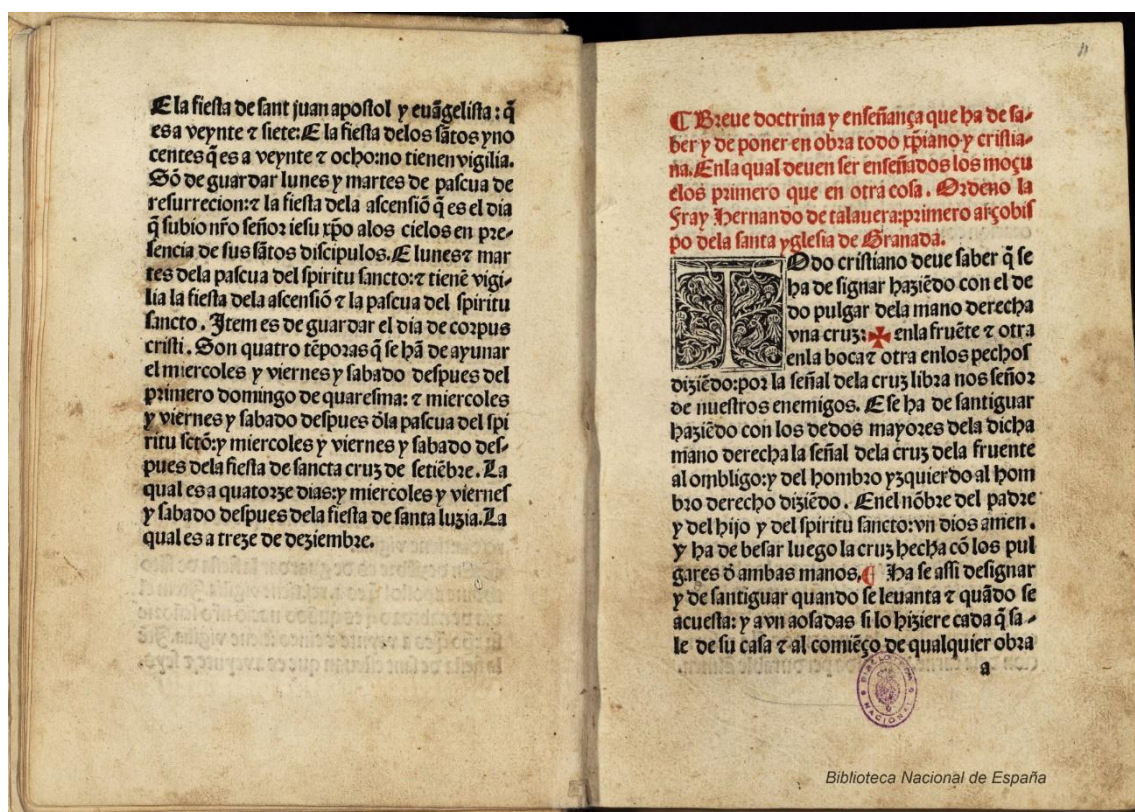 E la fiesta de sant juan apostol y euãgelista: q̃
es a veynte ⁊ siete: E la fiesta delos sãtos yno
centes q̃ es a veynte ⁊ ocho: no tienen vigilia.
Sõ de guardar lunes y martes de pascua de
resurrecion: ⁊ la fiesta dela ascensiõ q̃ es el dia
q̃ subio nr̃o señor iesu xp̃o alos cielos en pre-
sencia de sus sãtos discipulos. E lunes ⁊ mar
tes dela pascua del spiritu sancto: ⁊ tienẽ vigi-
lia la fiesta dela ascensiõ ⁊ la pascua del spiritu
sancto. Item es de guardar el dia de corpus
cristi. Son quatro tẽporas q̃ se hã de ayunar
el miercoles y viernes y sabado despues del
primero domingo de quaresma: ⁊ miercoles
y viernes y sabado despues d̃la pascua del spi
ritu sctõ: y miercoles y viernes y sabado des-
pues dela fiesta de sancta cruz de setiẽbre. La
qual es a quatorze dias: y miercoles y viernes
y sabado despues dela fiesta de santa luzia. La
qual es a treze de deziembre.
¶ Breue doctrina y enseñança que ha de sa-
ber y de poner en obra todo xp̃iano y cristia-
na. Enla qual deuen ser enseñados los moçu
elos primero que en otra cosa. Ordeno la
Fray Hernando de talauera: primero arçobis
po dela santa yglesia de Granada.
TOdo cristiano deue saber q̃ se
ha de signar haziẽdo con el de
do pulgar dela mano derecha
vna cruz: ✠ enla fruẽte ⁊ otra
enla boca ⁊ otra enlos pechos
diziẽdo: por la señal dela cruz libra nos señor
de nuestros enemigos. E se ha de santiguar
haziẽdo con los dedos mayores dela dicha
mano derecha la señal dela cruz dela fruente
al ombligo: y del hombro yzquierdo al hom
bro derecho diziẽdo. Enel nõbre del padre
y del hijo y del spiritu sancto: vn dios amen.
y ha de besar luego la cruz hecha cõ los pul
gares d̃ ambas manos. ¶ Ha se assi designar
y de santiguar quando se leuanta ⁊ quãdo se
acuesta: y avn aosadas si lo hiziere cada q̃ sa-
le de su casa ⁊ al comiẽço de qualquier obra
a
BIBLIOTECA NACIONAL
Biblioteca Nacional de España